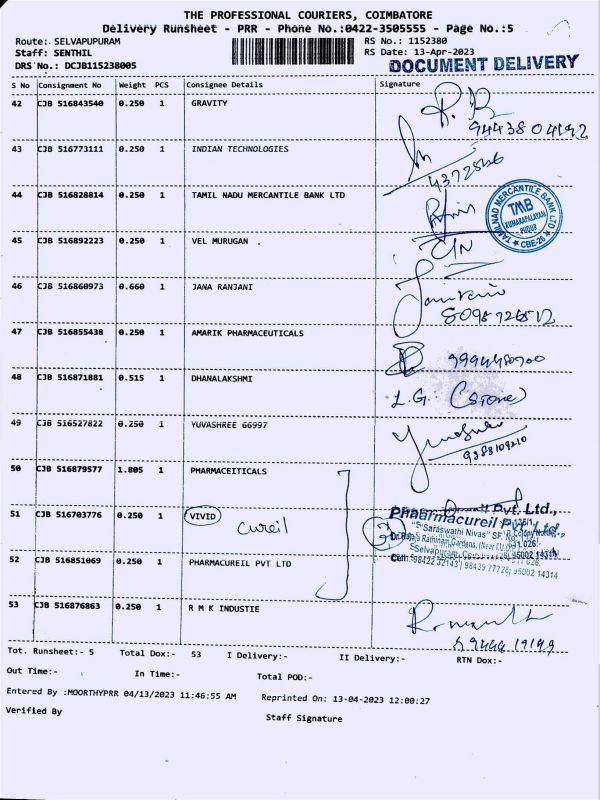 THE PROFESSIONAL COURIERS, COIMBATORE
Delivery Runsheet - PRR - Phone No.:0422-3505555 - Page No.:5
Route: SELVAPUPURAM RS No.: 1152380
Staff: SENTHIL RS Date: 13-Apr-2023
DRS No.: DCJB115238005 DOCUMENT DELIVERY
S No Consignment No Weight PCS Consignee Details Signature
42 CJB 516843540 0.250 1 GRAVITY
9443804192
43 CJB 516773111 0.250 1 INDIAN TECHNOLOGIES
44 CJB 516828814 0.250 1 TAMIL NADU MERCANTILE BANK LTD
TAMILNAD MERCANTILE BANK LTD
TMB
KUMARAPALAYAM
PUDUR
CBE-26
45 CJB 516892223 0.250 1 VEL MURUGAN
46 CJB 516860973 0.660 1 JANA RANJANI
47 CJB 516855438 0.250 1 AMARIK PHARMACEUTICALS
48 CJB 516871881 0.515 1 DHANALAKSHMI
L.G. (Stone)
49 CJB 516527822 0.250 1 YUVASHREE 66997
9388109210
50 CJB 516879577 1.805 1 PHARMACEITICALS
51 CJB 516703776 0.250 1 VIVID
cureil
Pharmacureil Pvt. Ltd.,
"Saraswathi Nivas"
Selvapuram,
Cell: 98422 32143| 98439 77728| 95002 14314
52 CJB 516851069 0.250 1 PHARMACUREIL PVT LTD
53 CJB 516876863 0.250 1 R M K INDUSTIE
Tot. Runsheet:- 5 Total Dox:- 53 I Delivery:- II Delivery:- RTN Dox:-
Out Time:- In Time:- Total POD:-
Entered By :MOORTHYPRR 04/13/2023 11:46:55 AM Reprinted On: 13-04-2023 12:00:27
Verified By Staff Signature